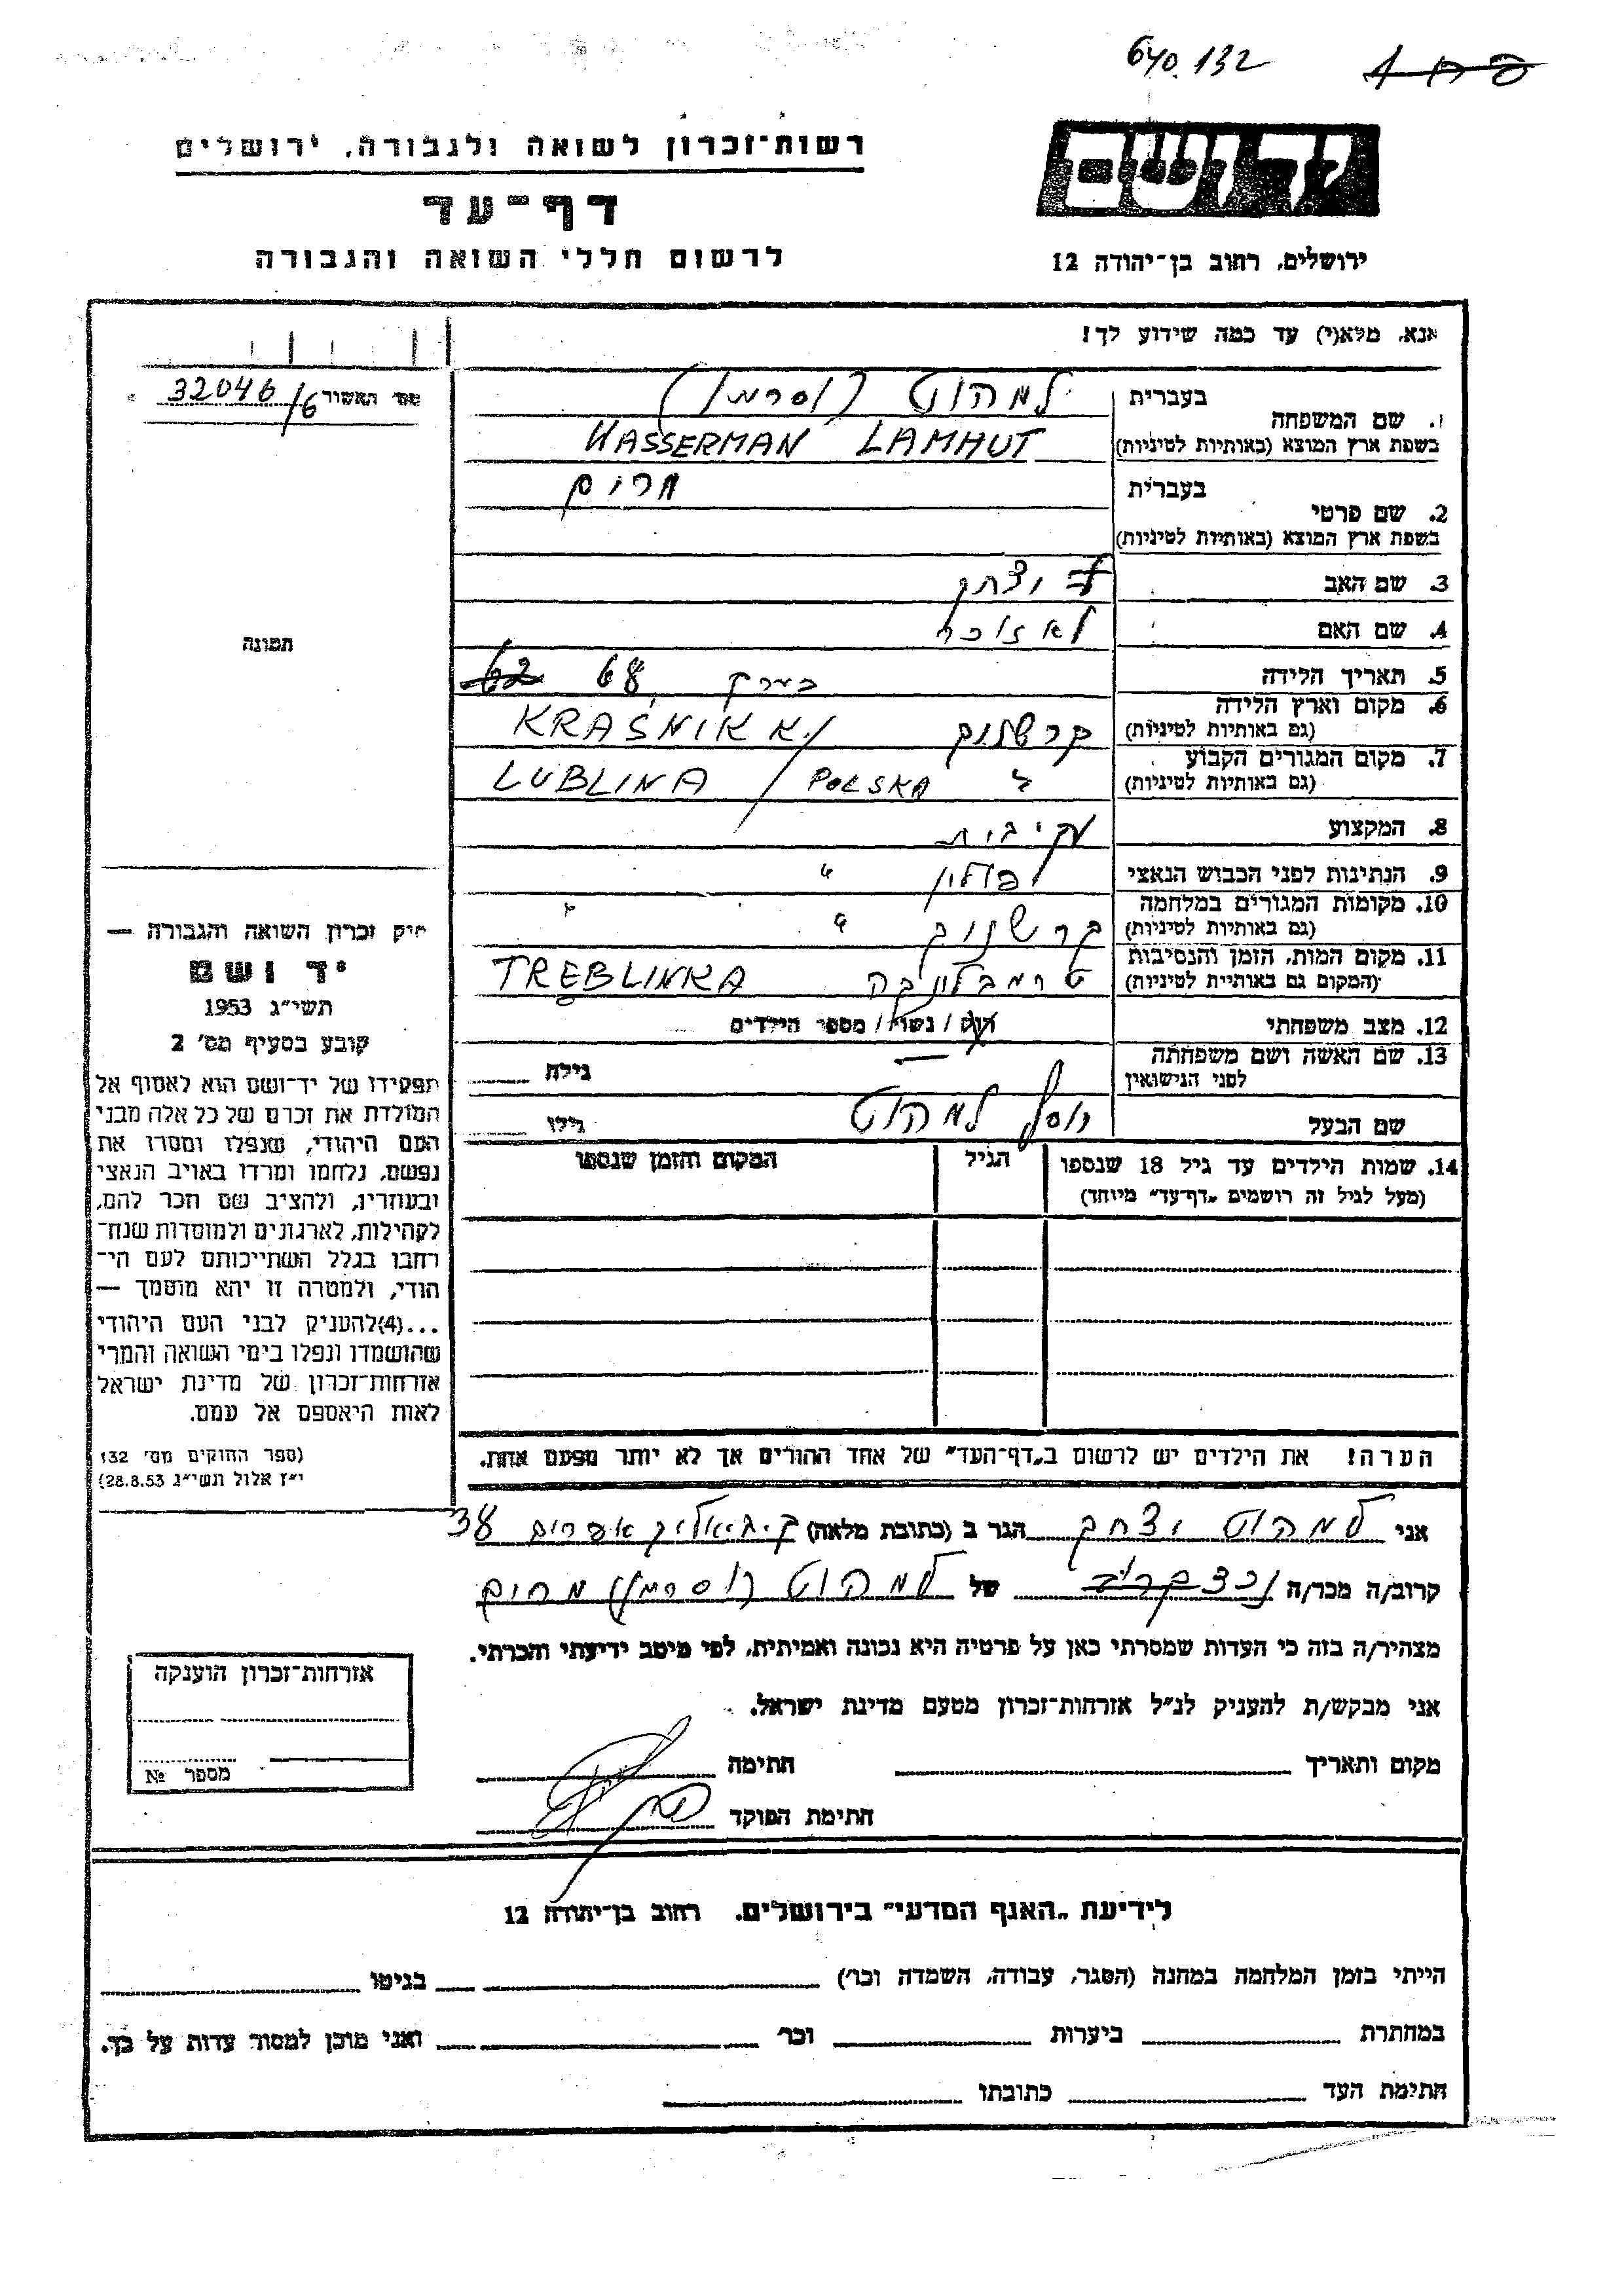 640.132
רשות־זכרון לשואה ולגבורה, ירושלים
יד ושם
דף־עד
לרשום חללי השואה והגבורה
ירושלים, רחוב בן־יהודה 12
אנא, מלא(י) עד כמה שידוע לך!
מס' תאשור 32046/6
1. שם המשפחה
בעברית למהוט (וסרמן)
בשפת ארץ המוצא (באותיות לטיניות) WASSERMAN LAMHUT
2. שם פרטי
בעברית מרים
בשפת ארץ המוצא (באותיות לטיניות)
3. שם האב יצחק
4. שם האם לא זוכר
5. תאריך הלידה בערך 68 62
6. מקום וארץ הלידה קרשניק KRAŚNIK K./
(גם באותיות לטיניות)
7. מקום המגורים הקבוע LUBLINA / POLSKA
(גם באותיות לטיניות)
8. המקצוע עקיבות
9. הנתינות לפני הכבוש הנאצי פולין "
10. מקומות המגורים במלחמה קרשניק " "
(גם באותיות לטיניות)
11. מקום המות, הזמן והנסיבות טרמבלינקה TREBLINKA
(המקום גם באותיית לטיניות)
12. מצב משפחתי רווק / נשוי / מספר הילדים
13. שם האשה ושם משפחתה
לפני הנישואין
גילה
שם הבעל יוסף למהוט גילו
14. שמות הילדים עד גיל 18 שנספו
(מעל לגיל זה רושמים „דף־עד" מיוחד)
הגיל
המקום והזמן שנספו
הערה! את הילדים יש לרשום ב„דף־העד" של אחד ההורים אך לא יותר מפעם אחת.
תמונה
חיק זכרון השואה והגבורה —
יד ושם
תשי"ג 1953
קובע בסעיף מס' 2
תפקידו של יד־ושם הוא לאסוף אל
המולדת את זכרם של כל אלה מבני
העם היהודי, שנפלו ומסרו את
נפשם, נלחמו ומרדו באויב הנאצי
ובעוזריו, ולהציב שם וזכר להם,
לקהילות, לארגונים ולמוסדות שנח־
רחבו בגלל השתייכותם לעם הי־
הודי, ולמטרה זו יהא מוסמך —
...(4)להעניק לבני העם היהודי
שהושמדו ונפלו בימי השואה והמרי
אזרחות־זכרון של מדינת ישראל
לאות היאספם אל עמם.
(ספר החוקים מס' 132
י"ז אלול תשי"ג 28.8.53)
אני למהוט יצחק הגר ב (כתובת מלאה) ק. ביאליק אפרים 38
קרוב/ה מכר/ה נכד של למהוט (וסרמן) מרים
מצהיר/ה בזה כי העדות שמסרתי כאן על פרטיה היא נכונה ואמיתית, לפי מיטב ידיעתי והכרתי.
אני מבקש/ת להעניק לנ"ל אזרחות־זכרון מטעם מדינת ישראל.
מקום ותאריך חתימה
חתימת הפוקד
אזרחות־זכרון הוענקה
מספר №
לידיעת „האגף המדעי" בירושלים, רחוב בן־יהודה 12
הייתי בזמן המלחמה במחנה (הסגר, עבודה, השמדה וכו') בגיטו
במחתרת ביערות וכו' ואני מוכן למסור עדות על כך.
חתימת העד כתובתו